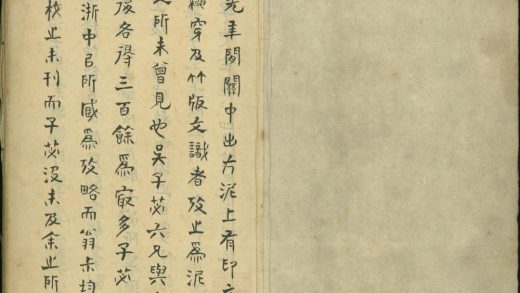 光年閒關中出片泥上有印
繩穿及竹版文識者攷止爲泥
所未曾見也吳子苾六兄與
後各得三百餘爲㝡多子苾
浙中㠯所臧爲攷略而翁尗均
校止未刊而子苾沒未及余止所